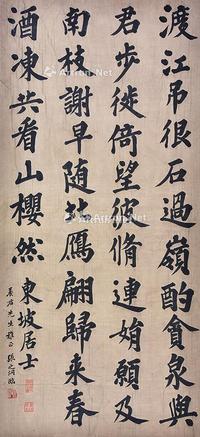 渡江吊很石過嶺酌貪泉與
君步徙倚望彼脩連娟願及
南枝謝早随北鴈翩歸来春
酒凍共看山櫻然
東坡居士
先生雅正 張之洞臨
Artron.Net